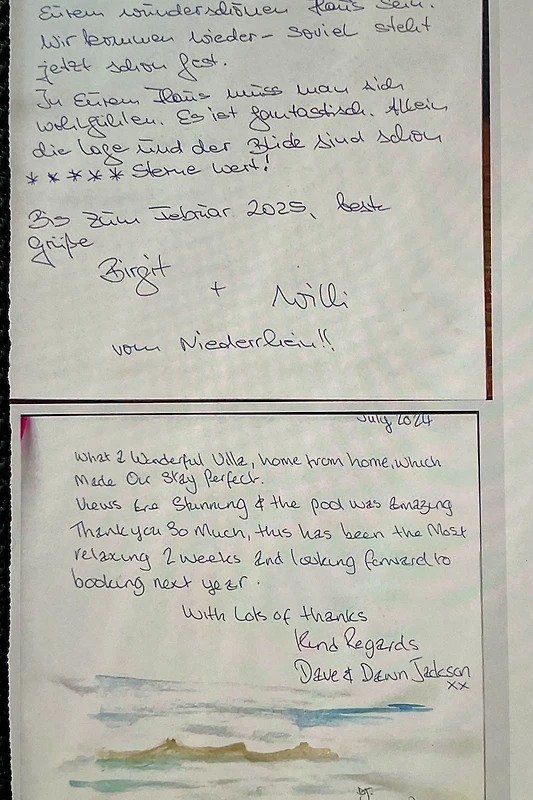 Eurem wunderschönen Haus sein.
Wir kommen wieder - soviel steht
jetzt schon fest.
In Eurem Haus muss man sich
wohlfühlen. Es ist fantastisch. Allein
die Lage und der Blick sind schon
***** Sterne wert!
Bis zum Februar 2025, beste
Grüße
Birgit
+ Willi
vom Niederrhein!!
July 2024
What a Wonderful Villa, home from home, which
Made Our Stay Perfect.
Views are Stunning & the pool was amazing
Thank you So Much, this has been the Most
relaxing 2 weeks and looking forward to
booking next year.
With Lots of thanks
Kind Regards
Dave & Dawn Jackson
xx